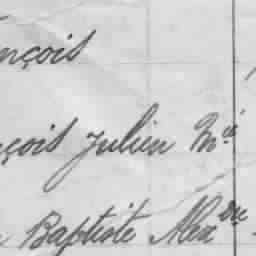 nçois
nçois Julien Mie
Baptiste Alexdre